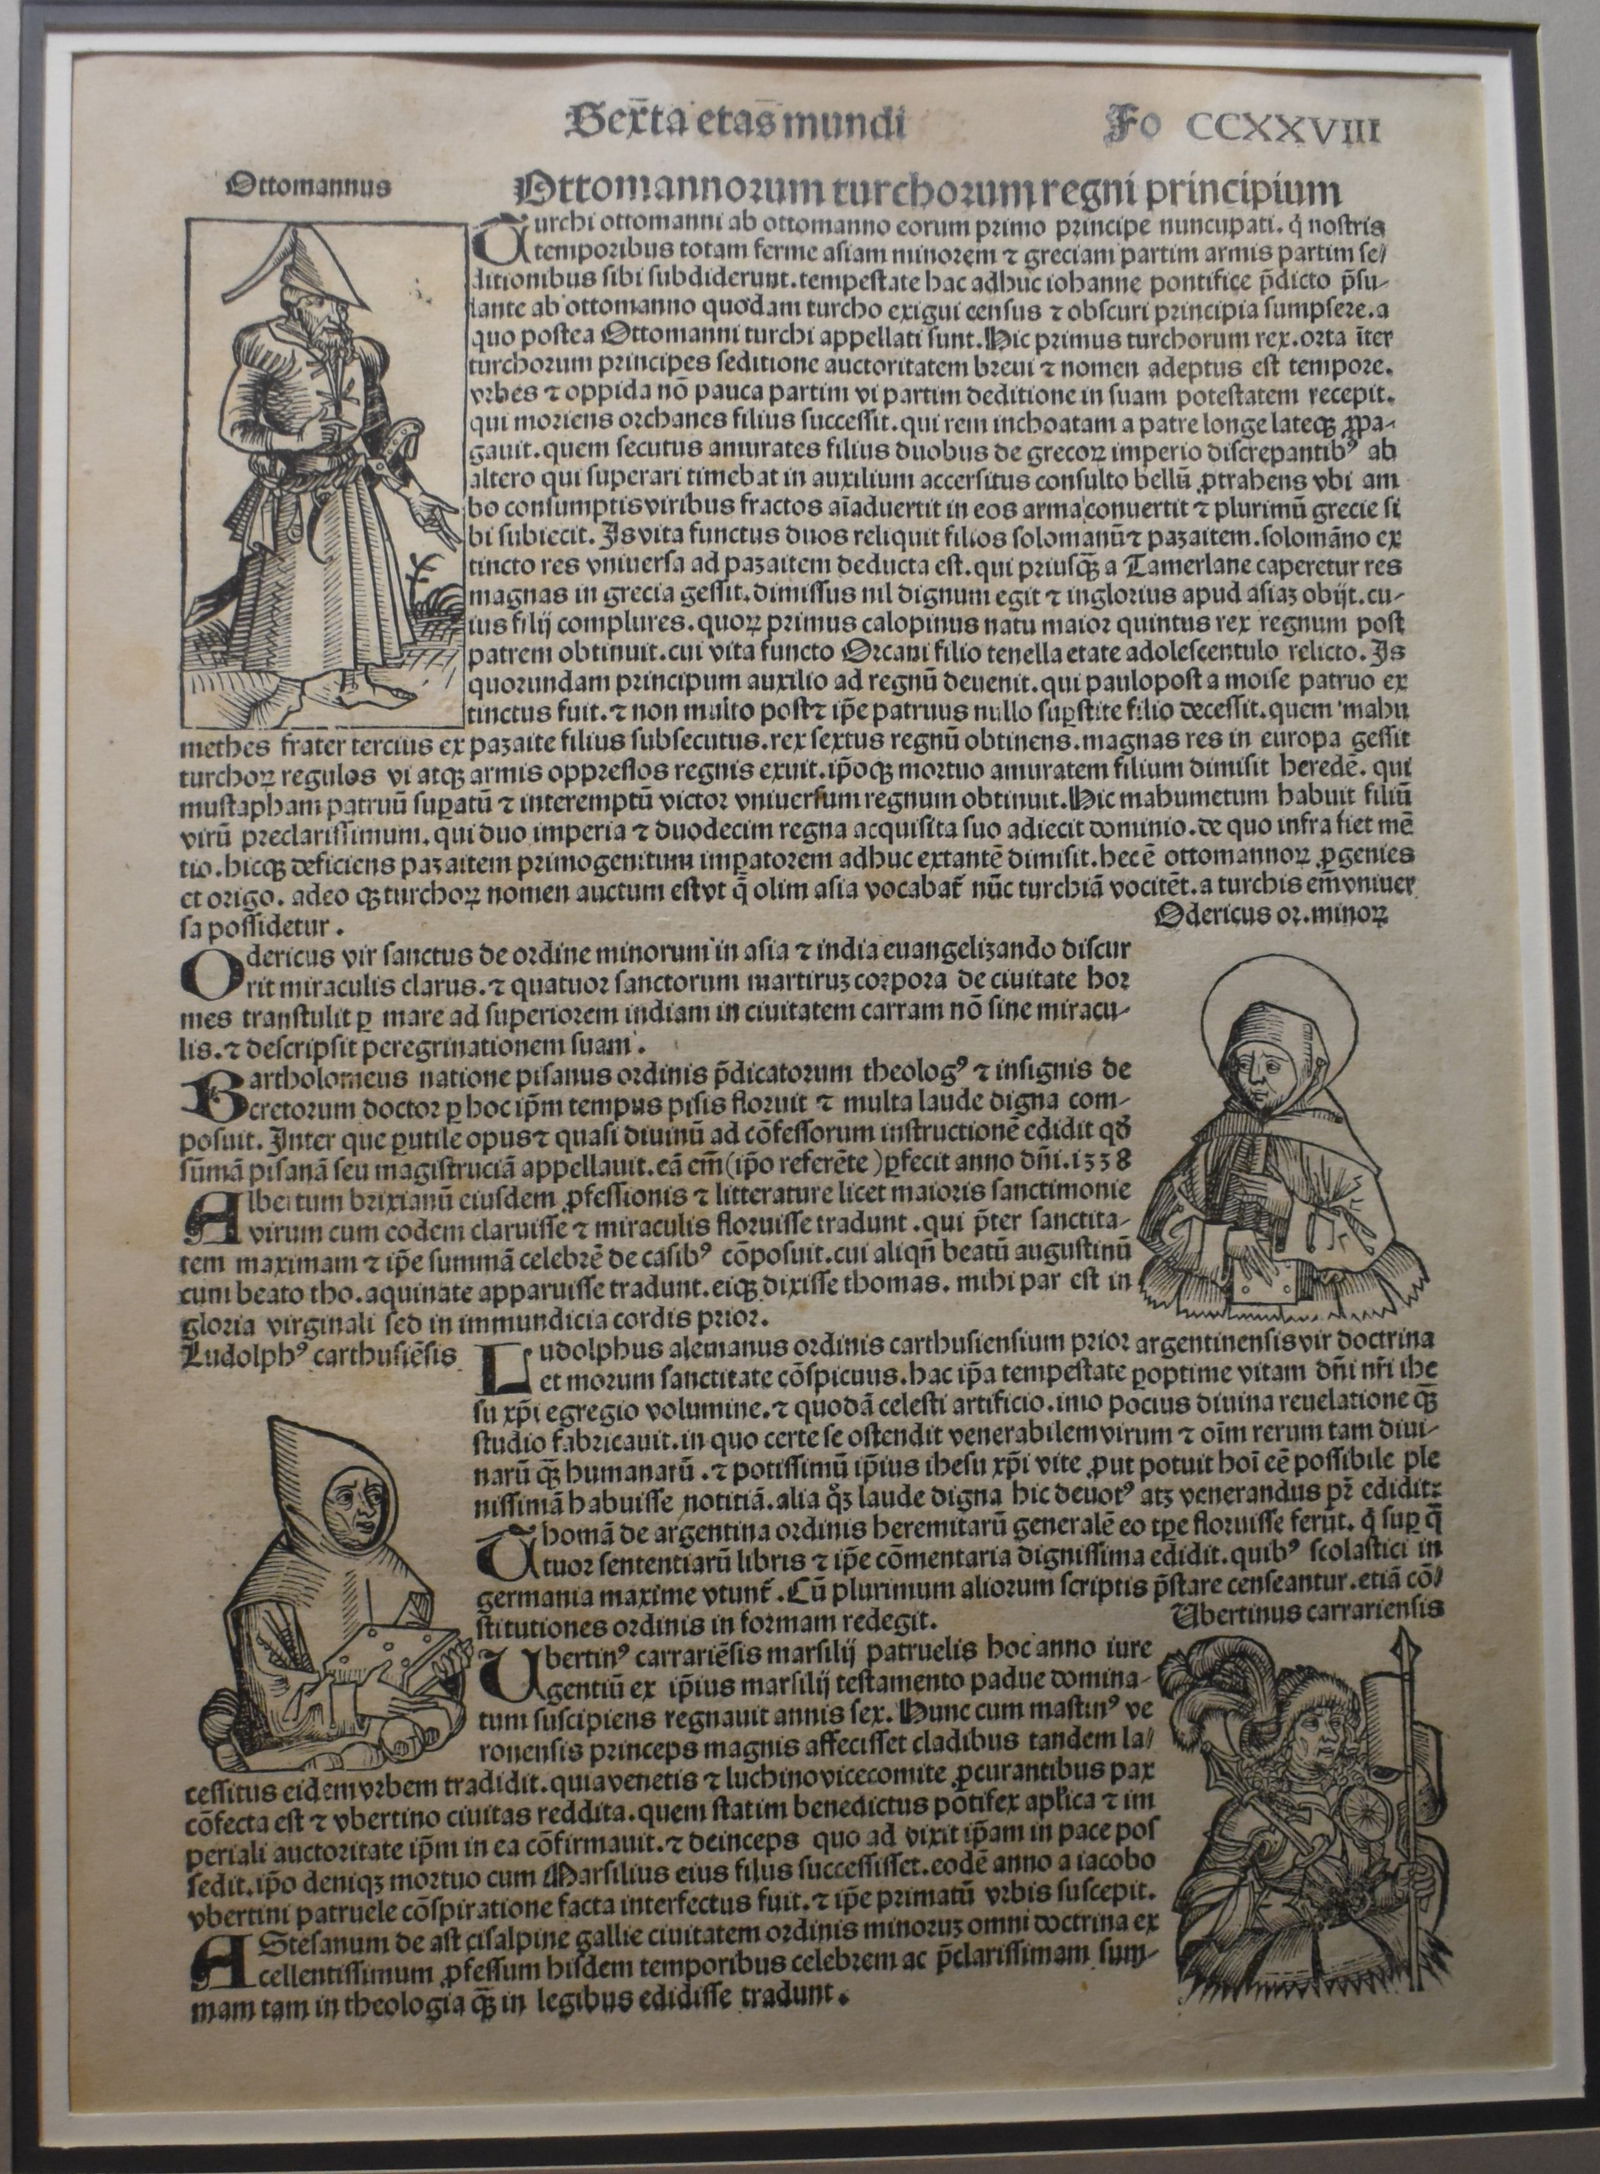 Sexta etas mundi
Fo CCXXVIII
Ottomannus
Ottomannorum turchorum regni principium
Turchi ottomanni ab ottomanno eorum primo principe nuncupati. q̄ nostris
temporibus totam ferme asiam minorem ⁊ greciam partim armis partim se/
ditionibus sibi subdiderunt. tempestate hac adhuc iohanne pontifice p̄dicto p̄su-
lante ab ottomanno quodam turcho exigui census ⁊ obscuri principia sumpsere. a
quo postea Ottomanni turchi appellati sunt. Hic primus turchorum rex. orta īter
turchorum principes seditione auctoritatem breui ⁊ nomen adeptus est tempore.
vrbes ⁊ oppida nō pauca partim vi partim deditione in suam potestatem recepit.
qui moriens orchanes filius successit. qui rem inchoatam a patre longe lateqꝫ ꝓpa-
gauit. quem secutus amurates filius duobus de grecoꝝ imperio discrepantibꝰ ab
altero qui superari timebat in auxilium accersitus consulto bellū ꝓtrahens vbi am
bo consumptis viribus fractos aīaduertit in eos arma conuertit ⁊ plurimū grecie si
bi subiecit. Is vita functus duos reliquit filios solomanū ⁊ pazaitem. solomāno ex
tincto res vniuersa ad pazaitem deducta est. qui priusq̄ꝫ a Tamerlane caperetur res
magnas in grecia gessit. dimissus nil dignum egit ⁊ inglorius apud asiaꝫ obijt. cu-
ius filij complures. quoꝝ primus calopinus natu maior quintus rex regnum post
patrem obtinuit. cui vita functo Orcani filio tenella etate adolescentulo relicto. Is
quorundam principum auxilio ad regnū deuenit. qui paulopost a moise patruo ex
tinctus fuit. ⁊ non multo post ⁊ ip̄e patruus nullo suꝑstite filio decessit. quem mahu
methes frater tercius ex pazaite filius subsecutus. rex sextus regnū obtinens. magnas res in europa gessit
turchoꝝ regulos vi atqꝫ armis oppressos regnis exuit. ip̄oqꝫ mortuo amuratem filium dimisit heredē. qui
mustapham patruū suꝑatū ⁊ interemptū victor vniuersum regnum obtinuit. Hic mahumetum habuit filiū
virū preclarissimum. qui duo imperia ⁊ duodecim regna acquisita suo adiecit dominio. de quo infra fiet mē
tio. hicqꝫ deficiens pazaitem primogenitum imꝑatorem adhuc extantē dimisit. hec ē ottomannoꝝ ꝓgenies
et origo. adeo qꝫ turchoꝝ nomen auctum est vt q̄ olim asia vocabat̄ nūc turchiā vocitēt. a turchis em̄ vniuer
sa possidetur.
Odericus or. minoꝝ
Odericus vir sanctus de ordine minorum in asia ⁊ india euangelizando discur
rit miraculis clarus. ⁊ quatuor sanctorum martiruꝫ corpora de ciuitate hor
mes transtulit ꝑ mare ad superiorem indiam in ciuitatem carram nō sine miracu-
lis. ⁊ descripsit peregrinationem suam.
Bartholomeus natione pisanus ordinis p̄dicatorum theologꝰ ⁊ insignis de
cretorum doctor ꝑ hoc ip̄m tempus pisis floruit ⁊ multa laude digna com-
posuit. Inter que ꝑutile opus ⁊ quasi diuinū ad cōfessorum instructionē edidit qd̄
sūmā pisanā seu magistruciā appellauit. eā em̄ (ip̄o referēte) ꝑfecit anno dn̄i. 1338
Albertum brixianū eiusdem ꝓfessionis ⁊ litterature licet maioris sanctimonie
virum cum eodem claruisse ⁊ miraculis floruisse tradunt. qui p̄ter sanctita-
tem maximam ⁊ ip̄e summā celebrē de casibꝰ cōposuit. cui aliqn̄ beatū augustinū
cum beato tho. aquinate apparuisse tradunt. eiqꝫ dixisse thomas. mihi par est in
gloria virginali sed in immundicia cordis prior.
Ludolphꝰ carthusiēsis
Ludolphus alemanus ordinis carthusiensium prior argentinensis vir doctrina
et morum sanctitate cōspicuus. hac ip̄a tempestate ꝑoptime vitam dn̄i nr̄i ihe
su xp̄i egregio volumine. ⁊ quodā celesti artificio. imo pocius diuina reuelatione q̄ꝫ
studio fabricauit. in quo certe se ostendit venerabilem virum ⁊ oīm rerum tam diui-
narū q̄ꝫ humanarū. ⁊ potissimū ip̄ius ihesu xp̄i vite ꝓut potuit hoī eē possibile ple
nissimā habuisse notitiā. alia qͦꝫ laude digna hic deuotꝰ atꝫ venerandus pr̄ edidit:
Thomā de argentina ordinis heremitarū generalē eo tꝑe floruisse ferūt. q̄ suꝑ q̄
tuor sententiarū libris ⁊ ip̄e cōmentaria dignissima edidit. quibꝰ scolastici in
germania maxime vtunt̄. Cū plurimum aliorum scriptis p̄stare censeantur. etiā cō/
stitutiones ordinis in formam redegit.
Ubertinus carrariensis
Ubertinꝰ carrariēsis marsilij patruelis hoc anno iure
gentiū ex ip̄ius marsilij testamento padue domina-
tum suscipiens regnauit annis sex. Hunc cum mastinꝰ ve
ronensis princeps magnis affecisset cladibus tandem la/
cessitus eidem vrbem tradidit. quia venetis ⁊ luchino vicecomite ꝓcurantibus pax
cōfecta est ⁊ vbertino ciuitas reddita. quem statim benedictus pōtifex apl̄ica ⁊ im
periali auctoritate ip̄m in ea cōfirmauit. ⁊ deinceps quo ad vixit ip̄am in pace pos
sedit. ip̄o deniqꝫ mortuo cum Marsilius eius filus successisset. eodē anno a iacobo
vbertini patruele cōspiratione facta interfectus fuit. ⁊ ip̄e primatū vrbis suscepit.
AStesanum de ast cisalpine gallie ciuitatem ordinis minoruꝫ omni doctrina ex
cellentissimum ꝓfessum hisdem temporibus celebrem ac p̄clarissimam sum-
mam tam in theologia q̄ꝫ in legibus edidisse tradunt.